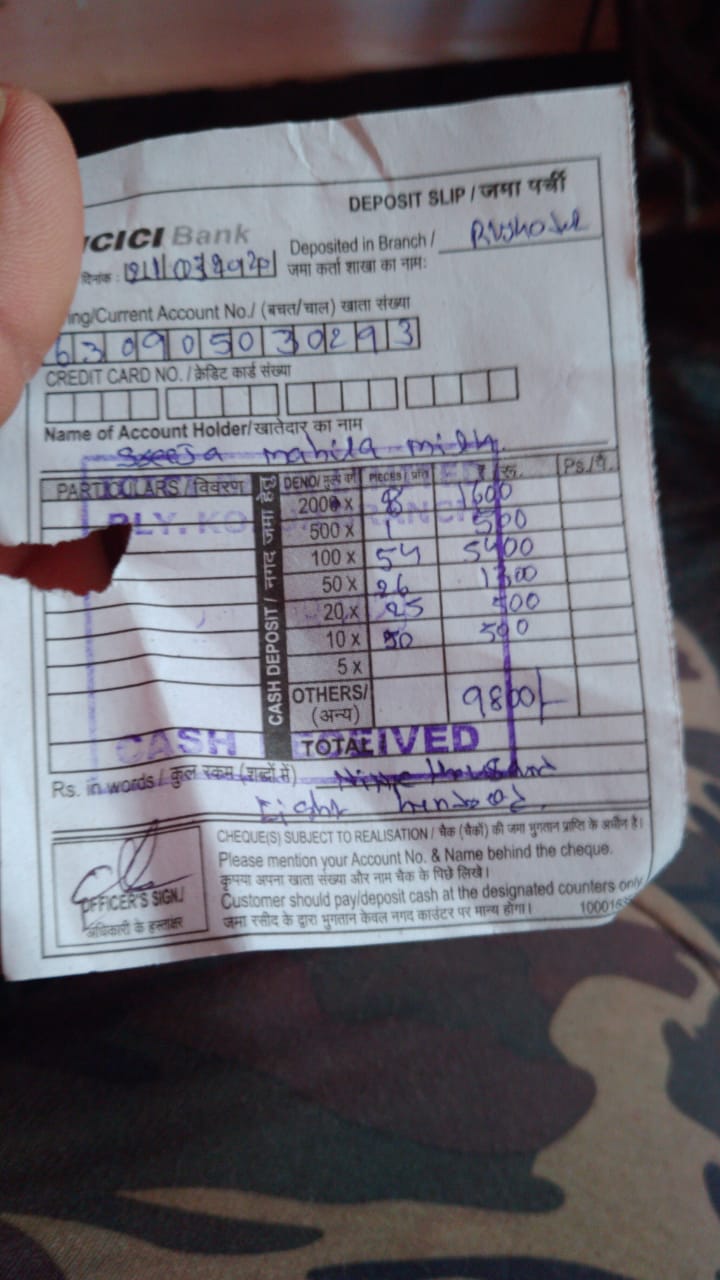 DEPOSIT SLIP / जमा पर्ची
ICICI Bank
Deposited in Branch /
दिनांक :
जमा कर्ता शाखा का नाम:
ing/Current Account No./ (बचत/चाल) खाता संख्या
630905030293
CREDIT CARD NO. / क्रेडिट कार्ड संख्या
Name of Account Holder/खातेदार का नाम
mahila milk
PARTICULARS / विवरण CASH DEPOSIT / नगद जमा हेतु DENO/ PIECES / ₹ / रू. Ps./पै.
200 x 8 1600
500 x 1 500
100 x 54 5400
50 x 26 1300
20 x 25 500
10 x 50 500
5 x
OTHERS/ 9800/-
(अन्य)
CASH RECEIVED
TOTAL
Rs. in words / कुल रकम (शब्दों में) Nine thousand
Eight hundred
CHEQUE(S) SUBJECT TO REALISATION / चैक (चैकों) की जमा भुगतान प्राप्ति के अधीन है।
Please mention your Account No. & Name behind the cheque.
कृपया अपना खाता संख्या और नाम चैक के पिछे लिखे।
OFFICER'S SIGN./
Customer should pay/deposit cash at the designated counters only
अधिकारी के हस्ताक्षर
जमा रसीद के द्वारा भुगतान केवल नगद काउंटर पर मान्य होगा।